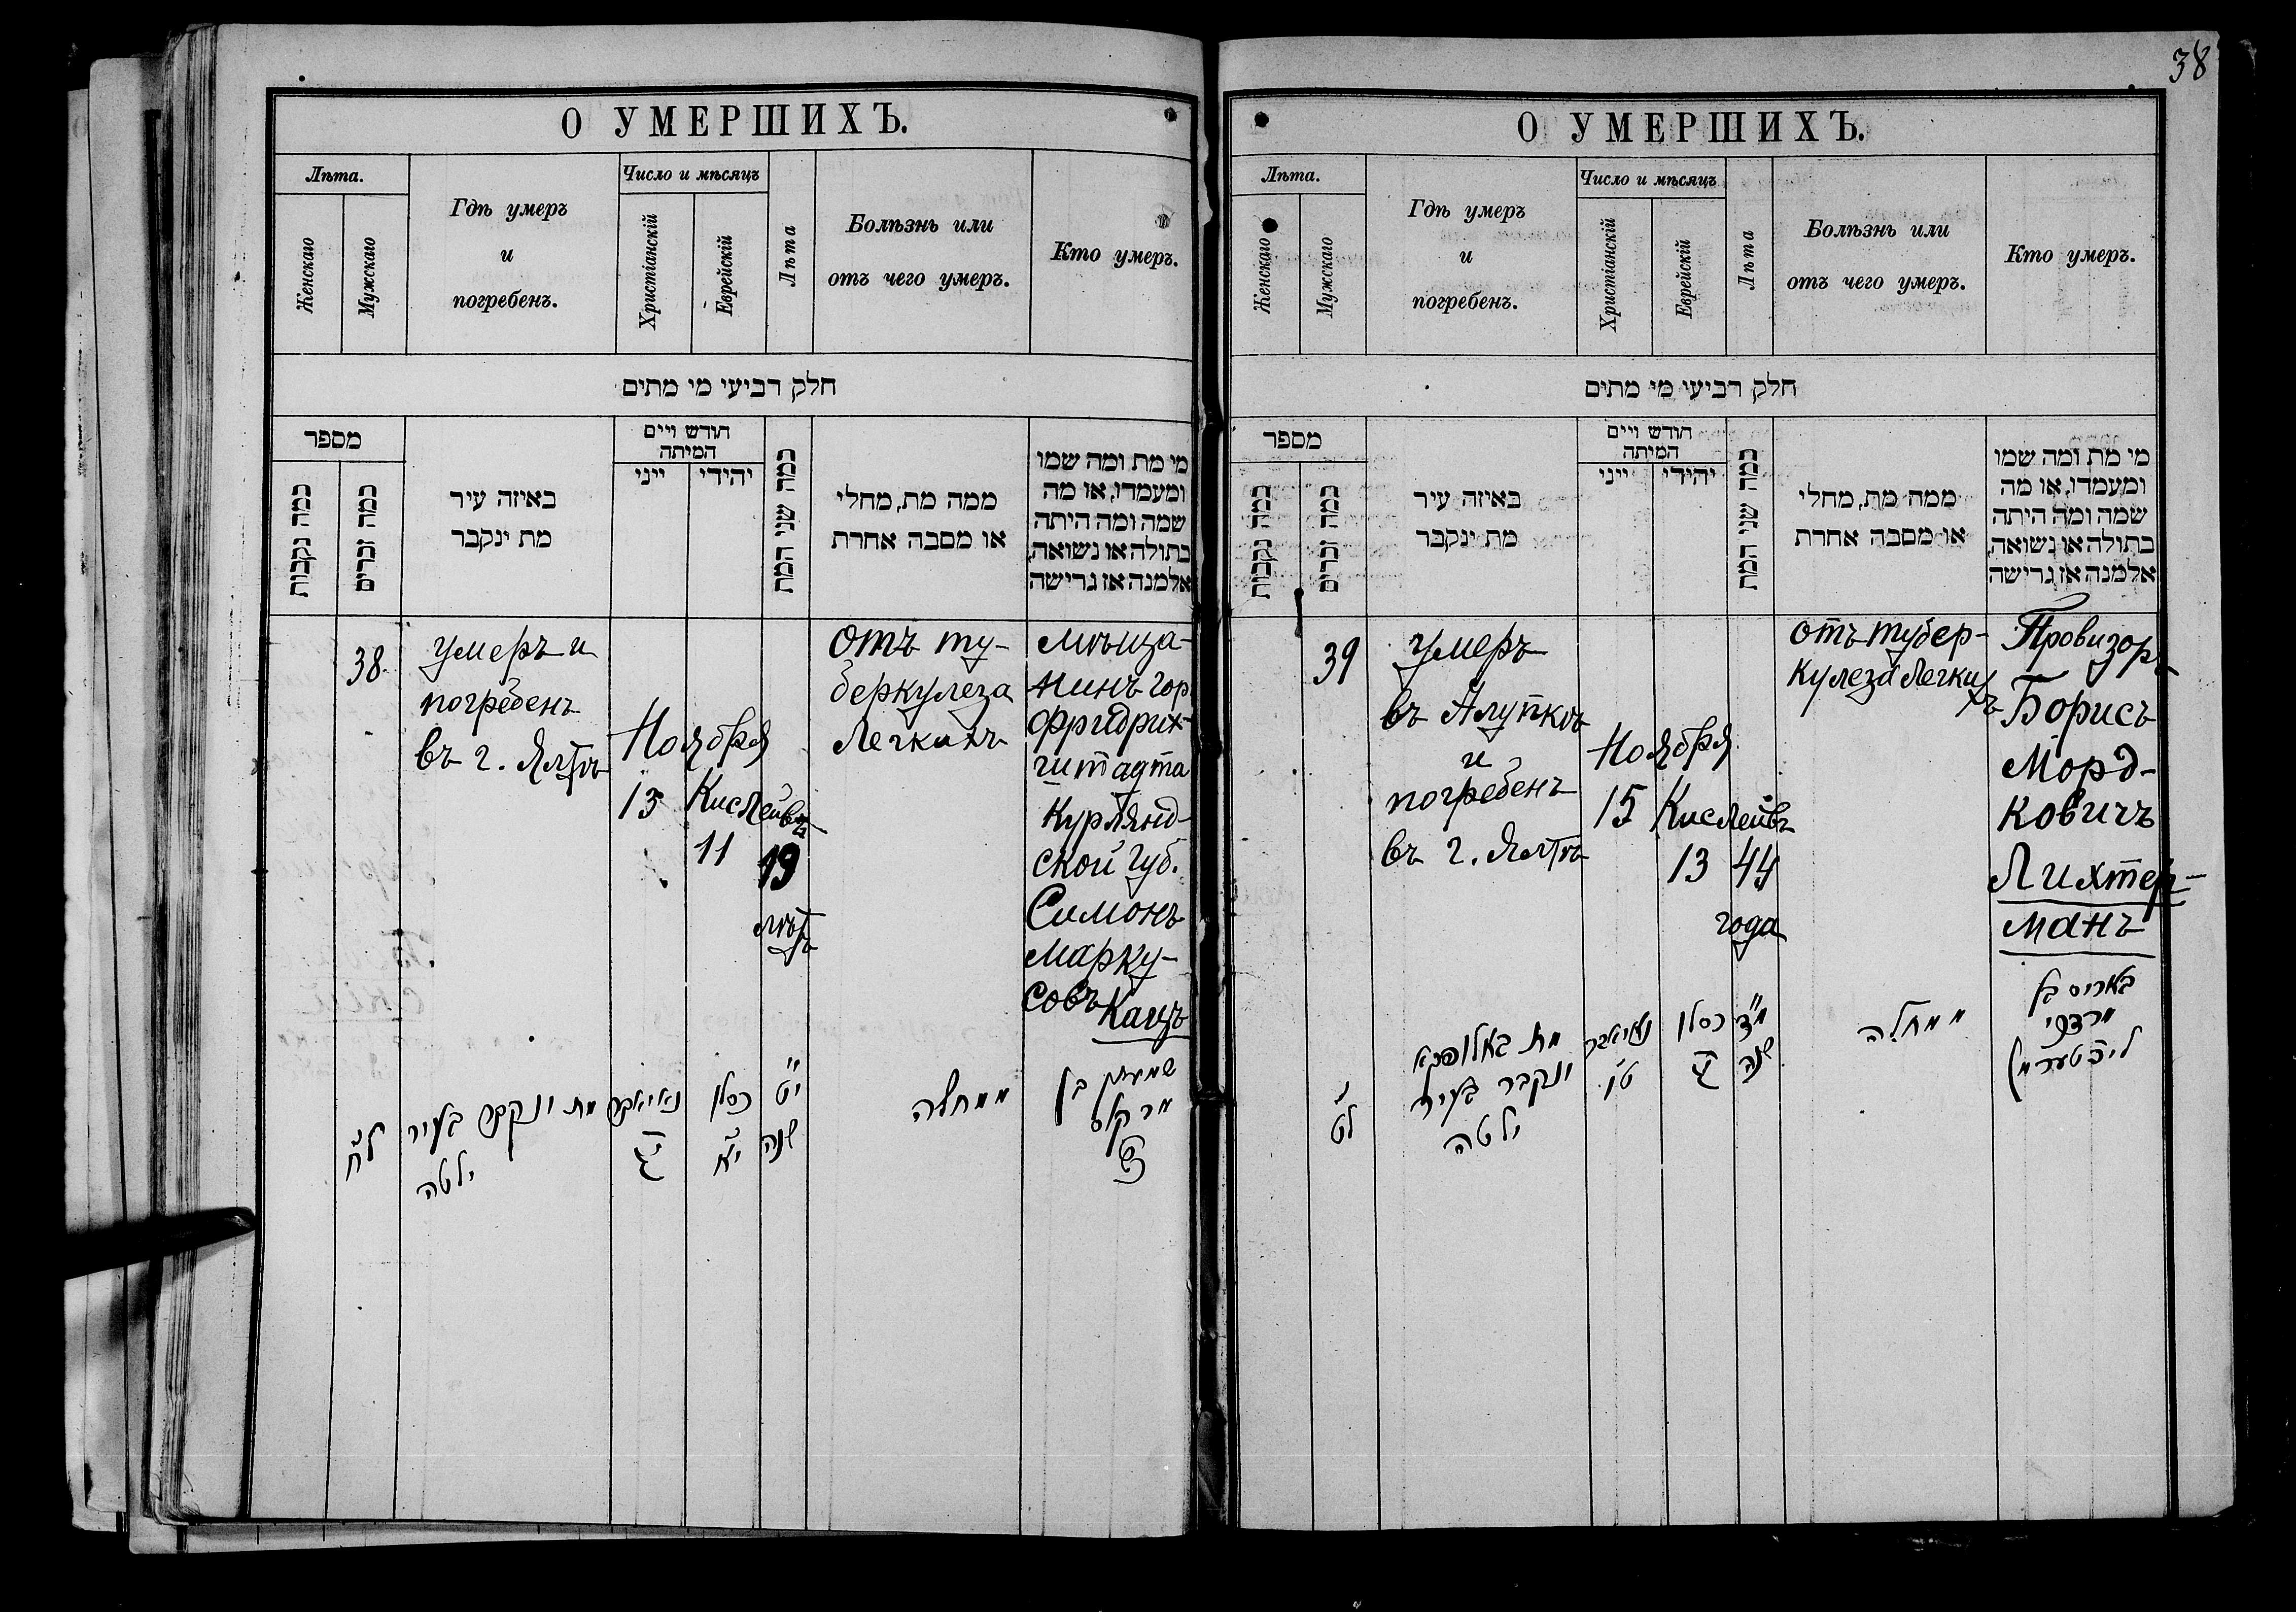 О УМЕРШИХЪ.
Лѣта.
Женскаго
Мужскаго
Гдѣ умеръ
и
погребенъ.
Число и мѣсяцъ
Христіанскій
Еврейскій
Лѣта
Болѣзнь или
отъ чего умеръ.
Кто умеръ.
חלק רביעי מי מתים
מספר
כמה נקבות
כמה זכרים
באיזה עיר
מת ינקבר
חודש ויים
המיתה
ייני
יהידי
כמה שני המת
ממה מת, מחלי
או מסבה אחרת
מי מת ומה שמו
ומעמדו, או מה
שמה ומה היתה
בתולה או נשואה,
אלמנה אז גרישה
38
умеръ и
погребенъ
въ г. Ялтѣ
Ноября
13
Кислейвъ
11
19
лѣтъ
отъ ту-
беркулеза
легкихъ
мѣща-
нинъ гор.
Фридрих-
штадта
Курлянд-
ской губ.
Симонъ
Марку-
совъ Кацъ
לח
מת ונקבר בעיר
ילטה
נאיאבר
יג
כסלו
יא
יט
שנה
ממחלה
שמעון בן
מרקוס
כץ
38
О УМЕРШИХЪ.
Лѣта.
Женскаго
Мужскаго
Гдѣ умеръ
и
погребенъ.
Число и мѣсяцъ
Христіанскій
Еврейскій
Лѣта
Болѣзнь или
отъ чего умеръ.
Кто умеръ.
חלק רביעי מי מתים
מספר
כמה נקבות
כמה זכרים
באיזה עיר
מת ינקבר
חודש ויים
המיתה
ייני
יהידי
כמה שני המת
ממה מת, מחלי
או מסבה אחרת
מי מת ומה שמו
ומעמדו, או מה
שמה ומה היתה
בתולה או נשואה,
אלמנה אז גרישה
39
умеръ
въ Алупкѣ
и
погребенъ
въ г. Ялтѣ
Ноября
15
Кислейвъ
13
44
года
отъ тубер-
кулеза легкихъ
Провизоръ
Борисъ
Морд-
ковичъ
Лихтер-
манъ
לט
מת באלופקא
ונקבר בעיר
ילטה
נאיאבר
טו
כסלו
יג
מ״ד
שנה
ממחלה
באריס בן
מרדכי
ליכטערמן